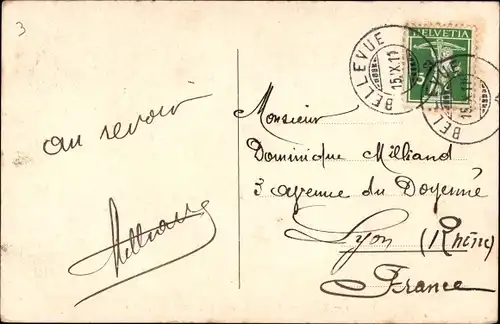 3
HELVETIA
5
BELLEVUE
15.X.11
BELLEVUE
au revoir
Monsieur
Dominique Milliand
3 avenue du Doyenné
Lyon (Rhône)
France
Milliand